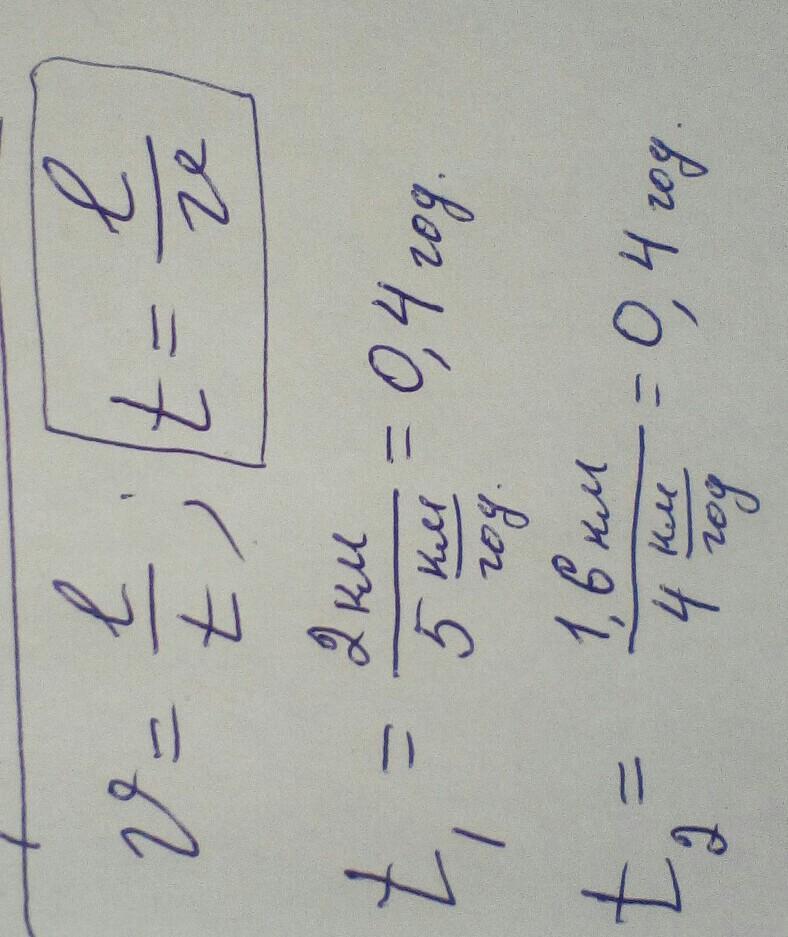 v = l/t, t = l/v
t₁ = 2 км / 5 км/год. = 0,4 год.
t₂ = 1,6 км / 4 км/год = 0,4 год.